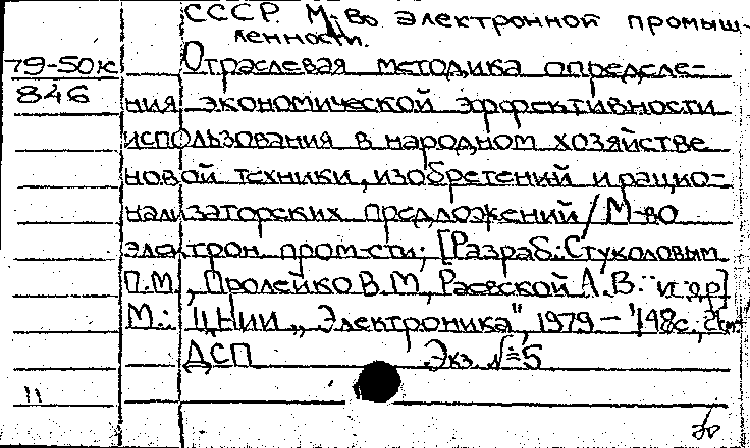 СССР. М-во электронной промыш-
ленности.
79-50к
846
Отраслевая методика определе-
ния экономической эффективности
использования в народном хозяйстве
новой техники, изобретений и рацио-
нализаторских предложений / М-во
электрон пром-сти; [Разраб.: Стуколовым
П.М., Пролейко В.М., Раевской А.В. и др]
М.: ЦНИИ „Электроника", 1979 – 148с.,
ДСП Экз. №5